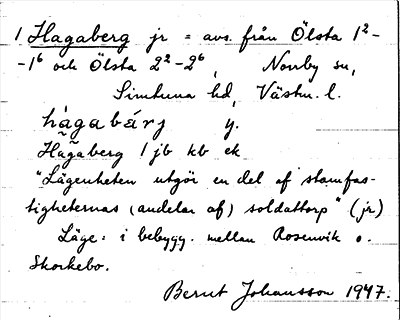 1 Hagaberg jr = avs. från Ölsta 1²-
-1⁶ och Ölsta 2²-2⁶, Norrby sn,
Simtuna hd, Västm. l.
hàgabárj y.
Hagaberg 1 jb kb ek
"Lägenheten utgör en del af stamfas-
tigheternas (andelar af) soldattorp" (jr)
Läge: i bebygg. mellan Rosenvik o.
Skorkebo.
Bernt Johansson 1947.